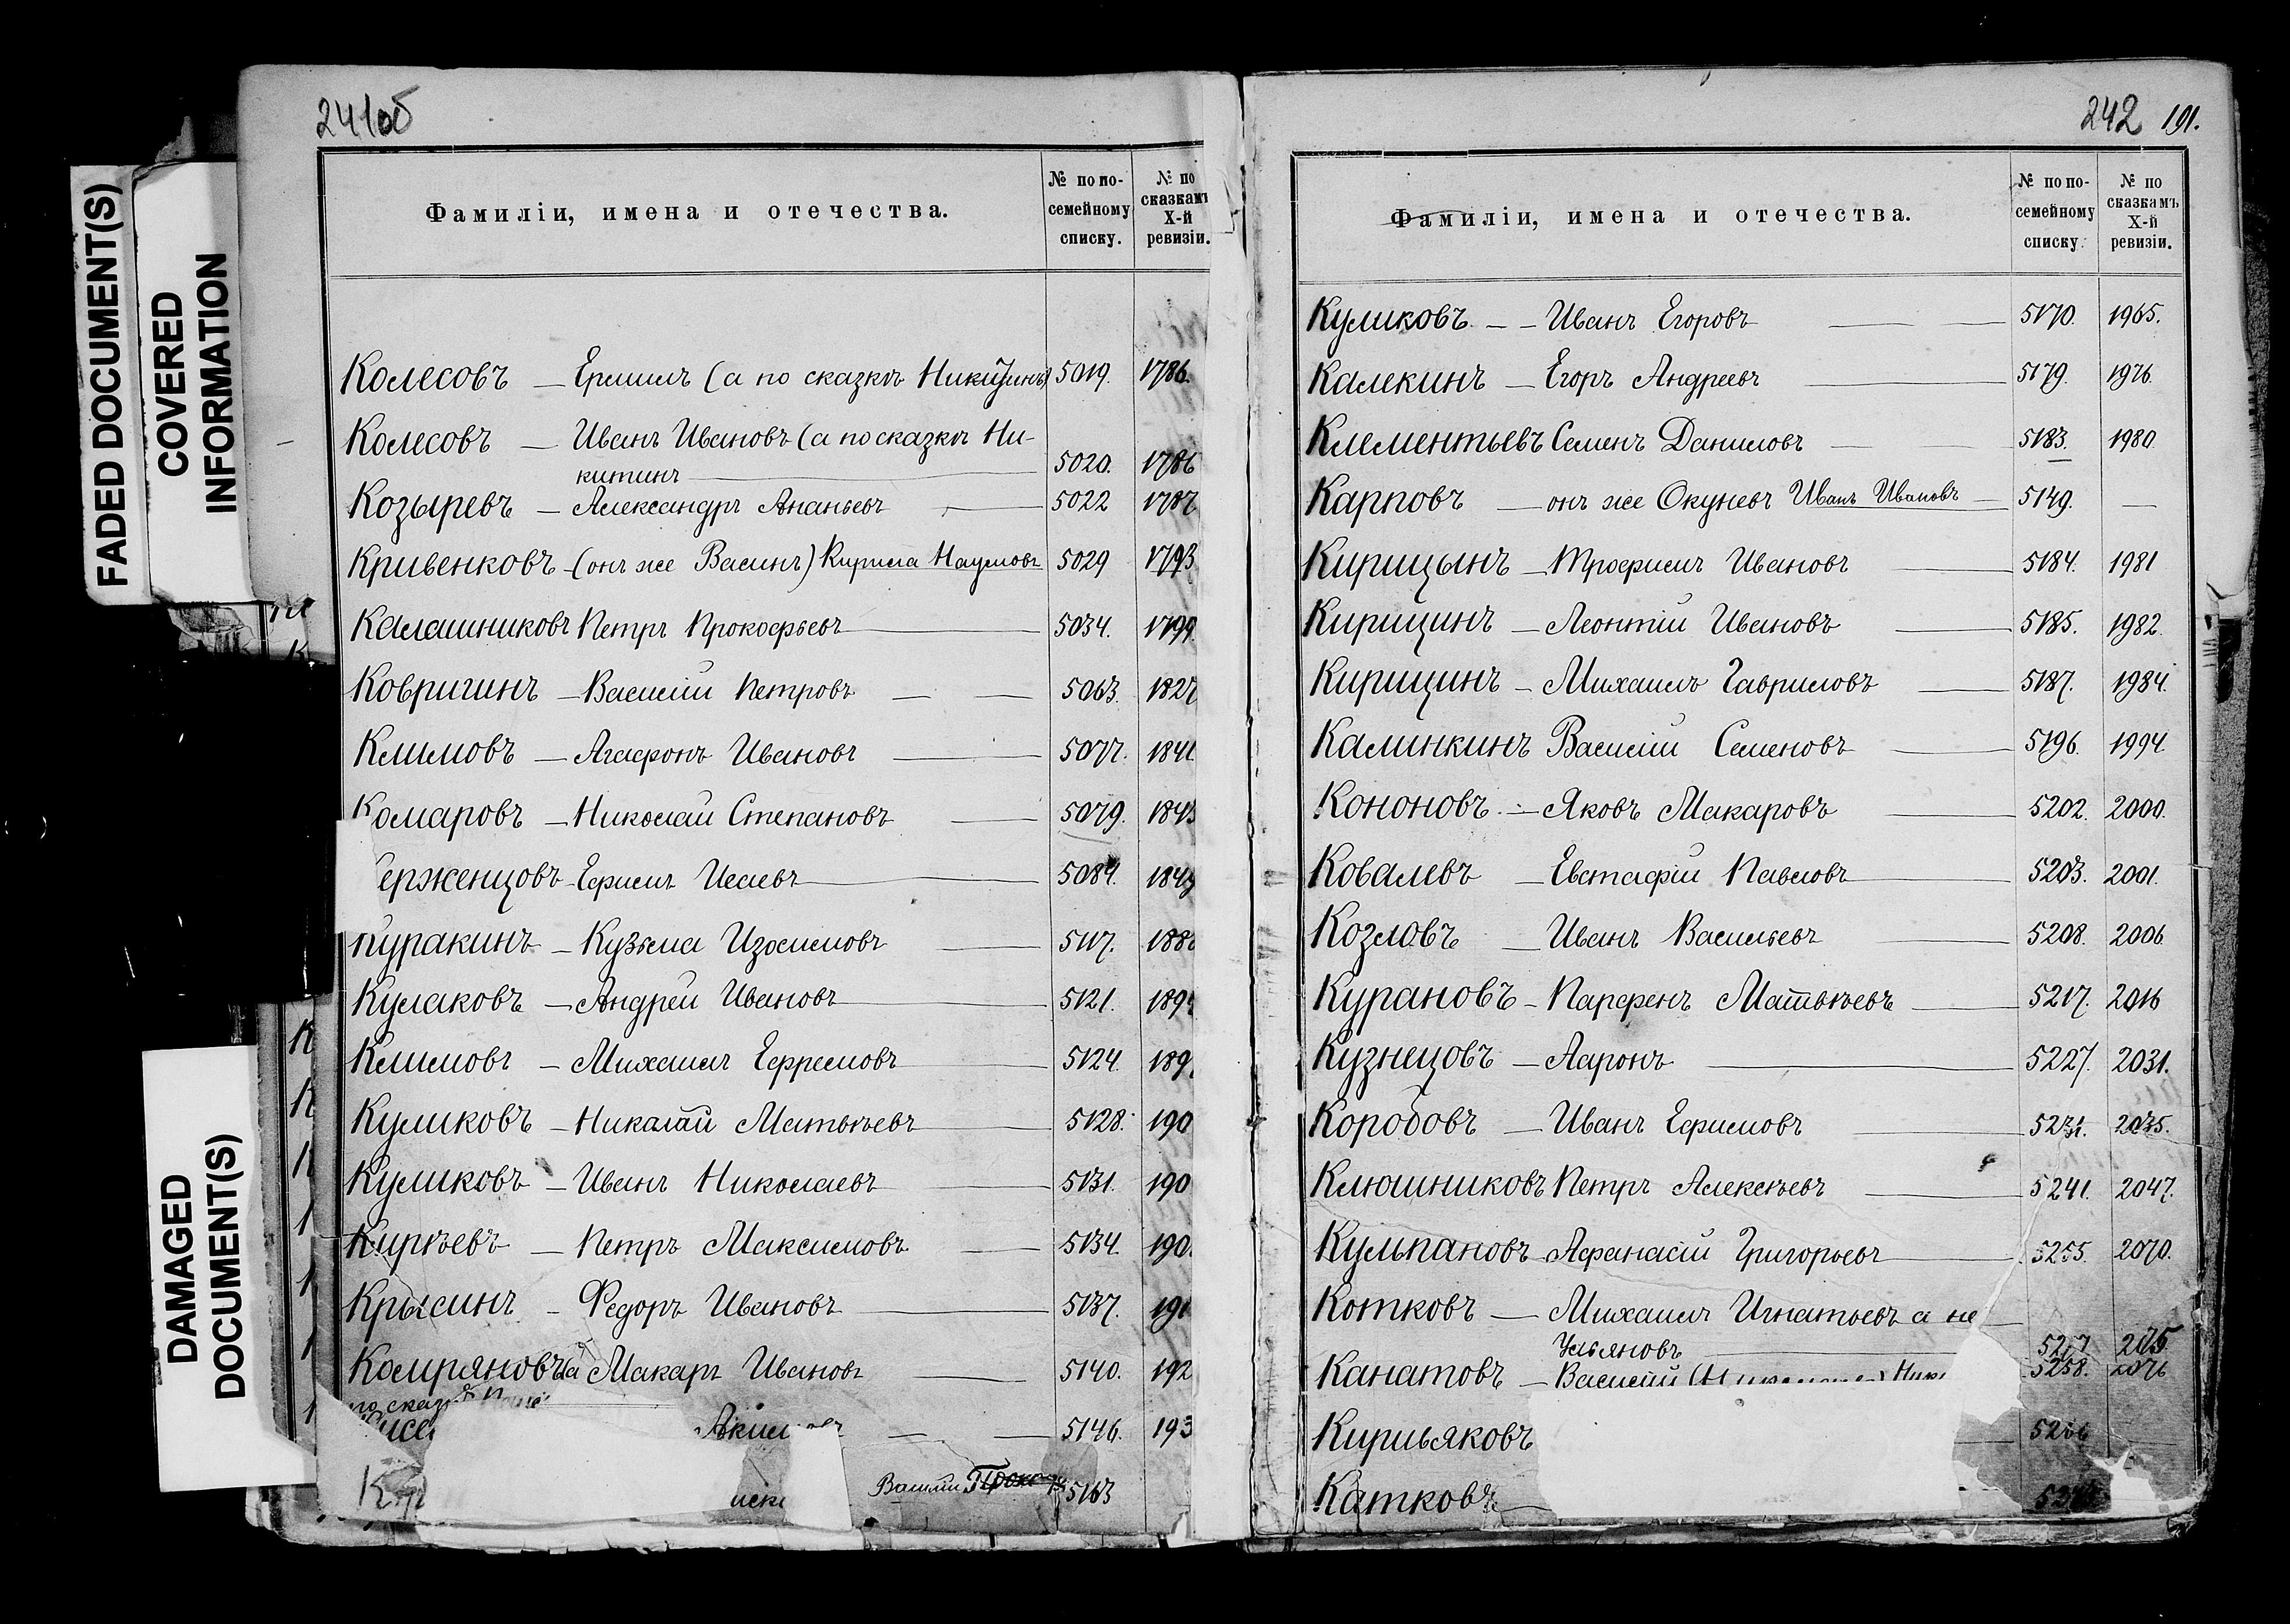 FADED DOCUMENT(S)
COVERED
INFORMATION
DAMAGED
DOCUMENT(S)
241об
Фамиліи, имена и отечества.
№ по по-
семейному
списку.
№ по
сказкамъ
X-й
ревизіи.
Колесовъ — Ермилъ (а по сказкѣ Никитинъ) 5019. 1786.
Колесовъ — Иванъ Ивановъ (а по сказкѣ Ни-
китинъ 5020. 1786
Козыревъ — Александръ Ананьевъ 5022 1787
Кривенковъ — (онъ же Васинъ) Кирила Наумовъ 5029 1793
Калашниковъ Петръ Прокофьевъ 5034. 1799.
Ковригинъ — Василій Петровъ 5063. 1827
Климовъ — Агафонъ Ивановъ 5077. 1841.
Комаровъ — Николай Степановъ 5079. 1843
ерженцовъ — Ефимъ Исаевъ 5084. 1849
Куракинъ — Кузьма Изосимовъ 5117. 188
Кулаковъ — Андрей Ивановъ 5121. 189
Климовъ — Михаилъ Ефремовъ 5124. 189
Куликовъ — Николай Матвѣевъ 5128. 190
Куликовъ — Иванъ Николаевъ 5131. 190
Кирѣевъ — Петръ Максимовъ 5134. 190
Крысинъ — Федоръ Ивановъ 5137. 191
Комряновъ (а Макаръ Ивановъ 5140. 192
по сказ
Аким 5146. 193
Василій 5163
242 191.
Фамиліи, имена и отечества.
№ по по-
семейному
списку.
№ по
сказкамъ
X-й
ревизіи.
Куликовъ — Иванъ Егоровъ 5170. 1965.
Калекинъ — Егоръ Андреевъ 5179. 1976.
Клементьевъ Семенъ Даниловъ — 5183. 1980
Карповъ — онъ же Окуневъ Иванъ Ивановъ — 5149. —
Кирицынъ — Трофимъ Ивановъ 5184. 1981
Кирицинъ — Леонтій Ивановъ 5185. 1982.
Кирицинъ — Михаилъ Гавриловъ 5187. 1984.
Калинкинъ Василій Семеновъ 5196. 1994.
Кононовъ — Яковъ Макаровъ 5202. 2000.
Ковалевъ — Евстафій Павловъ 5203. 2001.
Козловъ — Иванъ Васильевъ 5208. 2006
Курановъ — Парфенъ Матвѣевъ 5217. 2016
Кузнецовъ — Ааронъ 5227. 2031.
Коробовъ — Иванъ Ефимовъ 5231. 2035.
Клюшниковъ Петръ Алексѣевъ 5241. 2047.
Кульпановъ Афанасій Григорьевъ 5255. 2070.
Котковъ — Михаилъ Игнатьевъ а не
Ульяновъ 5257 2075
Канатовъ — Василій 5258. 2076
Кирильяковъ 5266
Катковъ